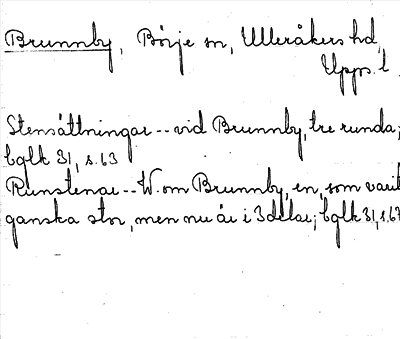 Brunnby, Börje sn, Ulleråkers hd,
Upps. l.
Stensättningar -- vid Brunnby, tre runda;
bglk 31, s. 63
Runstenar -- W. om Brunnby, en, som varit
ganska stor, men nu är i 3 delar; bglk 31, s. 67